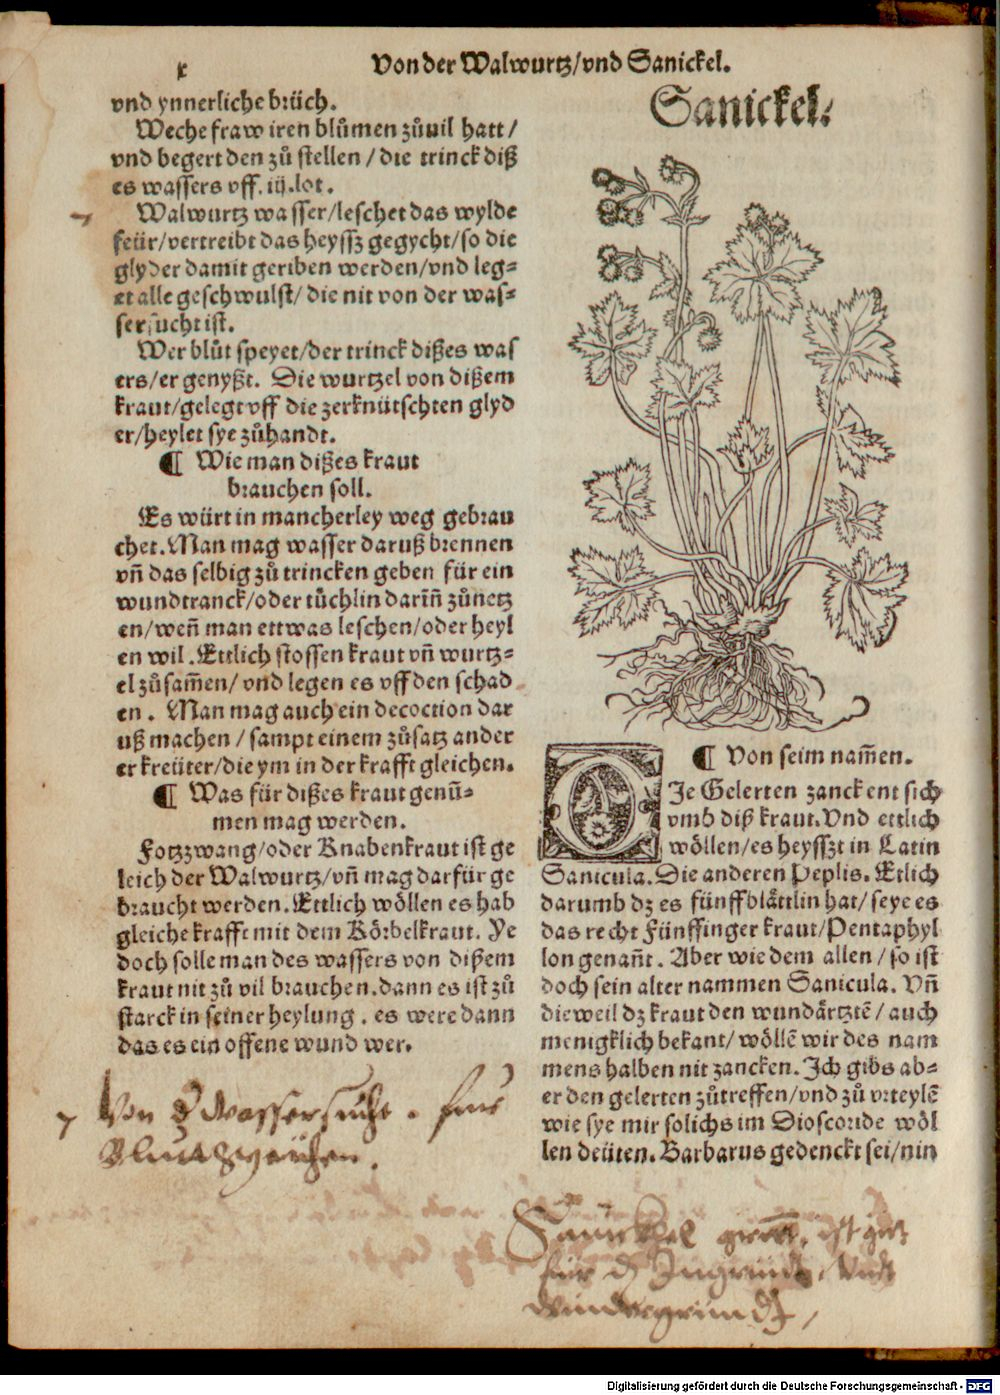 x
Von der Walwurtz/vnd Sanickel.
vnd ynnerliche brüch.
Weche fraw iren blůmen zůuil hatt/
vnd begert den zů stellen/die trinck diß
es wassers vff. iij.lot.
Walwurtz wasser/leschet das wylde
feür/vertreibt das heyssz gegycht/so die
glyder damit geriben werden/vnd leg⸗
et alle geschwulst/ die nit von der was⸗
sersucht ist.
Wer blůt speyet/der trinck dißes was
ers/er genyßt. Die wurtzel von dißem
kraut/gelegt vff die zerknütschten glyd
er/heylet sye zůhandt.
¶ Wie man dißes kraut
brauchen soll.
Es würt in mancherley weg gebrau
chet. Man mag wasser daruß brennen
vñ das selbig zů trincken geben für ein
wundtranck/oder tüchlin darīñ zůnetz
en/weñ man ettwas leschen/oder heyl
en wil. Ettlich stossen kraut vñ wurtz⸗
el zůsam̄en/ vnd legen es vff den schad
en. Man mag auch ein decoction dar
uß machen / sampt einem zůsatz ander
er kreüter/die ym in der krafft gleichen.
¶ Was für dißes kraut genū⸗
men mag werden.
Fotzzwang/oder Knabenkraut ist ge
leich der Walwurtz/vñ mag darfür ge
braucht werden. Ettlich wöllen es hab
gleiche krafft mit dem Körbelkraut. Ye
doch solle man des wassers von dißem
kraut nit zů vil brauchen. dann es ist zů
starck in seiner heylung. es were dann
das es ein offene wund wer.
Von wassersücht. für
Sanickel.
¶ Von seim nam̄en.
DIe Gelerten zanckent sich
vmb diß kraut. Vnd ettlich
wöllen/es heysszt in Latin
Sanicula. Die anderen Peplis. Etlich
darumb dz es fünffblättlin hat/seye es
das recht Fünffinger kraut/Pentaphyl
lon genañt. Aber wie dem allen/so ist
doch sein alter nammen Sanicula. Vñ
dieweil dz kraut den wundärtztē/ auch
menigklich bekant/wöllē wir des nam
mens halben nit zancken. Ich gibs ab⸗
er den gelerten zůtreffen/vnd zů vrteylē
wie sye mir solichs im Dioscoride wöl
len deüten. Barbarus gedenckt sei/nin
ist gut
für
Digitalisierung gefördert durch die Deutsche Forschungsgemeinschaft - DFG